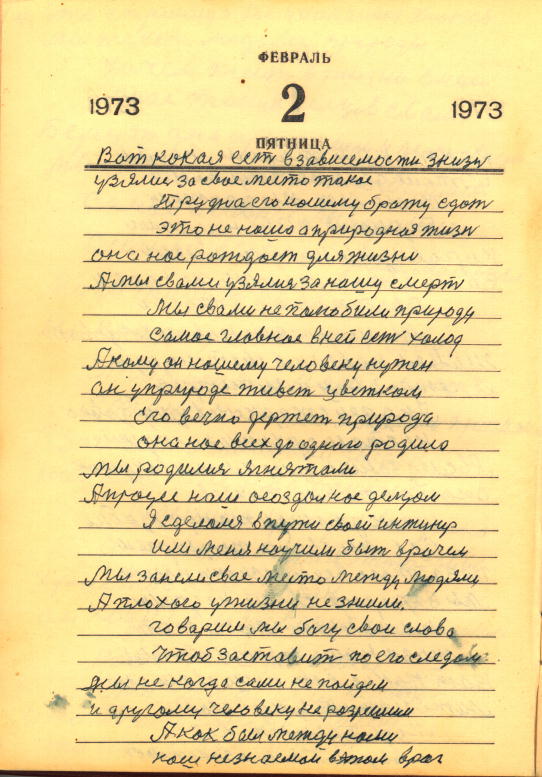 ФЕВРАЛЬ
1973 2 1973
ПЯТНИЦА
Вот кокая ест в зависемости знизи
узялис за свое место такое
Итрудна его ношему брату сдот
это не наша априродная жизн
она нас рождает для жизни
Амы свами узялис за нашу смерт
мы свами не полюбили природу
самое главное вней ест холод
Акому он ношему человеку нужен
он уприроде живет цветком
его вечно держет природа
она нас всех до одного родила
мы родилис ягнятами
нас делцом
Я сделался впути своей инжинир
или меня научили быт врачем
мы занели свае место между людями
Аплохого ужизни не знали.
говарим мы богу свои слова
чтоб заставит по его следом
мы не когда сами не пойдем
и другому человеку не розрешим
Акак был между нами
наш незнаемой втом враг